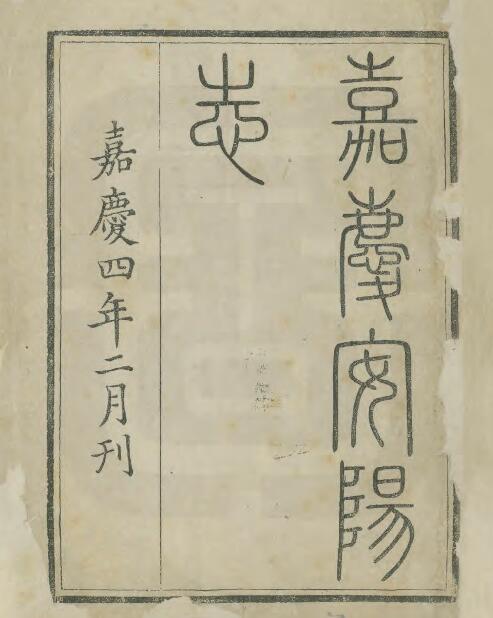 嘉慶安陽
志
嘉慶四年二月刊